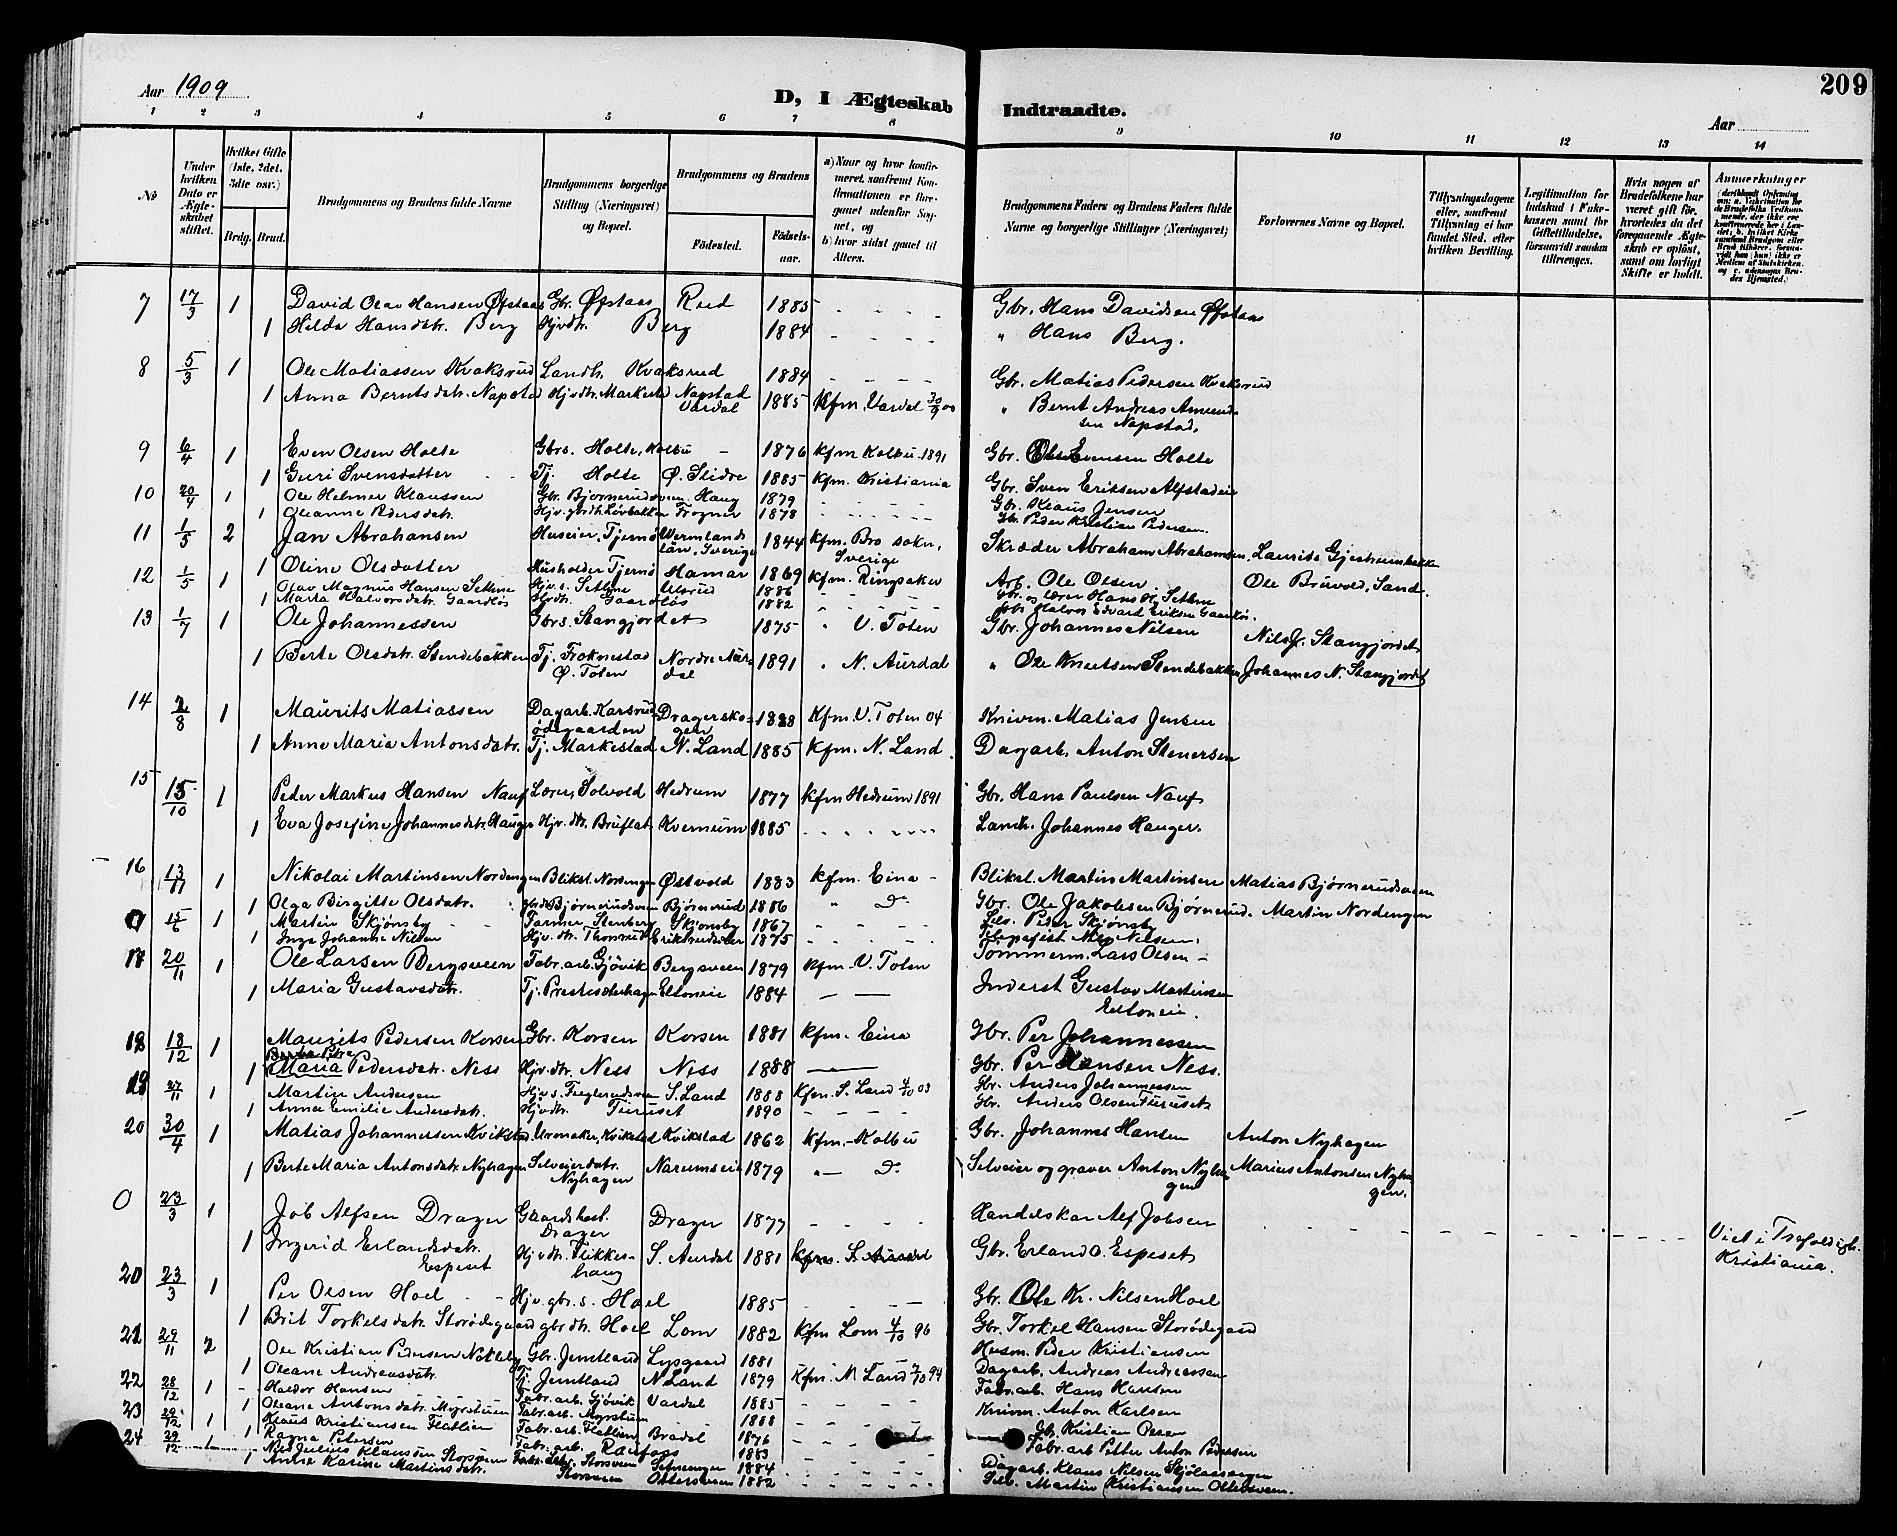 209
Aar 1909
D, I Ægteskab Indtraadte.
Aar
1 2 3 4 5 6 7 8 9 10 11 12 13 14
№
Under hvilken Dato er Ægteskabet stiftet.
Hvilket Gifte (1ste, 2det, 3die osv.)
Brdg. Brud.
Brudgommens og Brudens fulde Navne
Brudgommens borgerlige Stilling (Næringsvei) og Bopæl.
Brudgommens og Brudens
Fødested.
Fødsels-aar.
a) Naar og hvor konfirmeret, saafremt Konfirmationen er foregaaet udenfor Sognet, og
b) hvor sidst gaaet til Alters.
Brudgommens Faders og Brudens Faders fulde Navne og borgerlige Stillinger (Næringsvei)
Forlovernes Navne og Bopæl.
Tillysningsdagene eller, saafremt Tillysning ei har fundet Sted, efter hvilken Bevilling.
Legitimation for Indskud i Enkekassen samt for Giftetilladelse, forsaavidt saadan tiltrænges.
Hvis nogen af Brudefolkene har været gift før, hvorledes da det foregaaende Ægteskab er opløst, samt om lovligt Skifte er holdt.
Anmærkninger
7 17/3 1 David Olav Hansen Øfstaas Gbr. Øfstaas Rud 1885 Gbr. Hans Davidsen Øfstaas
1 Hilda Hansdatr. Berg Hjvdtr. Berg 1884 " Hans Berg.
8 5/3 1 Ole Matiassen Kvaksrud Landh. Kvaksrud 1884 Gbr. Matias Pedersen Kvaksrud
1 Anna Berntsdatr. Napstad Hjvdtr. Markestad Napstad Vardal 1885 Kfm. Vardal 30/9 00 " Bernt Andreas Amundsen Napstad.
9 6/4 1 Even Olsen Holte Gbrs. Holte, Kolbu 1876 Kfm Kolbu 1891 Gbr. Ole Evensen Holte
1 Guri Svensdatter Tj. Holte Ø. Slidre 1885 Kfm. Kristiania Gbr. Sven Eriksen Alfstadeie
10 20/4 1 Ole Helmer Klaussen Gbr. Bjørnerudsveen Haug 1879 Gbr. Klaus Jensen
1 Oleanne Pedersdatr. 1878 Gbr. Peder Kristian Pedersen
11 1/5 2 Jan Abrahansen Huseier, Tjernø Wermlands län, Sverige 1844 Kfm. Bro sokn, Sverige Skræder Abraham Abrahamsen Laurids Gjestrumbakke
1 Oline Olsdatter Husholder Tjernø Hamar 1869 Kfm. Ringsaker Arb. Ole Olsen Ole Bruvold, Sand
12 1/5 1 Olav Magnus Hansen Setlme 1886 Gbr. og lærer Hans H. Setlme
1 Marta Halvorsdatr. Gaardløs Hjvdtr. Gaardløs 1882 Gbr. Halvor Edvard Eriksen Gaardløs.
13 1/7 1 Ole Johannessen Gbrs. Stangjordet 1875 " V. Toten Gbr. Johannes Nilsen Nils J. Stangjordet
1 Berte Olsdatr. Stendebakken Tj. Froknestad Ø. Toten Nordre Aurdal 1891 " N. Aurdal " Ole Knutsen Stendebakken Johannes N. Stangjordet
14 2/8 1 Maurits Matiassen Dagarb. Karsrudødegaarden Dragerskogen 1888 Kfm. V. Toten 04 Knivm. Matias Jensen
1 Anne Maria Antonsdatr. Tj. Markestad N. Land 1885 Kfm. N. Land Dagarb. Anton Stenersen
15 15/10 1 Peder Markus Hansen Nauf Lærer, Solvold Hedrum 1877 Kfm Hedrum 1891 Gbr. Hans Paulsen Nauf
1 Eva Josefine Johannesdatr. Hauger Hjv.dtr. Bruflat Kvernum 1885 Landh. Johannes Hauger.
16 13/11 1 Nikolai Martinsen Nordengen Bliksl. Nordengen Østvold 1883 Kfm. Eina Bliksl. Martin Martinsen Matias Bjørnerudsveen
1 Olga Birgitte Olsdatr. Bjørnerudsveen Bjørnerud 1886 " Do Gbr. Ole Jakobsen Bjørnerud. Martin Nordengen
0 15/6 1 Martin Skjønsby Farmer, Stenberg Skjønsby 1867 Selv. Peder Skjønsby
1 Inga Johanne Nilsen Hjv.dtr. Thonrud 1875 Nilsen.
17 20/11 1 Ole Larsen Bergsveen Fabr.arb. Gjøvik Bergsveen 1879 Kfm. V. Toten Tømmerm. Lars Olsen
1 Maria Gustavsdatr. Tj. Prestesæterhagen Eltoneie 1884 Inderst Gustav Martinsen Eltoneie.
18 18/12 1 Maurits Pedersen Korsen Gbr. Korsen Korsen 1881 Kfm. Eina Gbr. Per Johannessen
1 Berta Petra Maria Pedersdatr. Ness Hjv.dtr. Ness Ness 1888 Gbr. Per Hansen Ness.
19 27/11 1 Martin Andersen S. Land 1888 Kfm. S. Land 4/10 03 Gbr. Anders Johannessen
1 Anna Emilie Andersdatr. Hjvdtr. Furuset 1890 Gbr. Anders Olsen Furuset
20 30/4 1 Matias Johannessen Kvikstad. Urmaker, Kvikstad Kvikstad 1862 Kfm. Kolbu Gbr. Johannes Hansen Anton Nyhagen
1 Berte Maria Antonsdatr. Nyhagen Selveierdatr. Nyhagen Narumseie 1879 " Do Selveier og graver Anton Nyhagen Marius Antonsen Nyhagen.
0 23/3 1 Job Alfsen Drager Gaardsbest. Drager Drager 1877 Handelskar Alf Jobsen
1 Ingerid Erlandsdatr. Espeset Hjvdtr. Flikkeshaug S. Aurdal 1881 Kfm. S. Aurdal Gbr. Erland O. Espeset Viet i Trefoldigh. Kristiania.
20 23/3 1 Per Olsen Hoel Hjv. gbr.s. Hoel 1885 Gbr. Ole Kr. Nilsen Hoel
1 Brit Torkelsdatr. Storødegaard gbrdtr. Hoel Lom 1882 Kfm Lom 4/10 96 Gbr. Torkel Hansen Storødegaard
21 29/11 2 Ole Kristian Pedersen Nøkleby Gbr. Jemtland Lysgaard 1881 Husm. Peder Kristiansen
1 Oleane Andreasdatr. Tj. Jemtland N. Land 1879 Kfm. N. Land 2/10 94 Dagarb. Andreas Andreassen
22 28/12 1 Haldor Hansen Fabr.arb. Gjøvik Vardal 1885 Fabr.arb. Hans Hansen
1 Oleane Antonsdatr. Myrstuen Fabr.arb. Myrstuen 1888 Knivm. Anton Karlsen
23 29/12 1 Klaus Kristiansen Flatlien Fabr.arb. Flatlien Brådal 1876 Kristian Olsen
1 Ragna Petersen Fabr.arb. Raufoss 1883 Fabr.arb Petter Anton Pedersen
24 29/12 1 Nils Julius Klausen Storsveen Storsveen Setnengen 1884 Dagarb. Klaus Nilsen
1 Anne Karine Martinsdatr. Storsveen Ottersveen 1882 Selv. Martin Kristiansen Ottersveen.